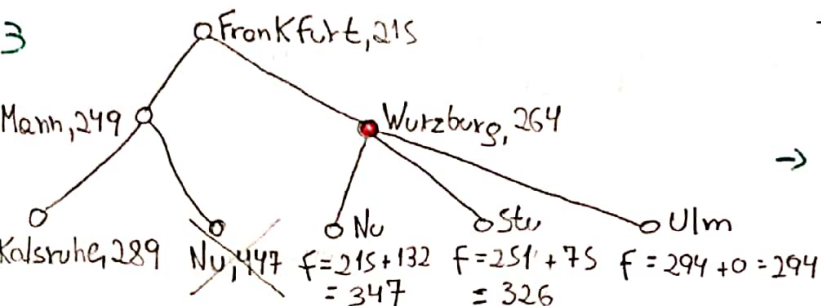 3
Frankfurt, 215
Mann, 249
Wurzburg, 264
→
Kalsruhe, 289
Nu, 447
Nu
f = 215 + 132
= 347
Stu
f = 251 + 75
= 326
Ulm
f = 294 + 0 = 294